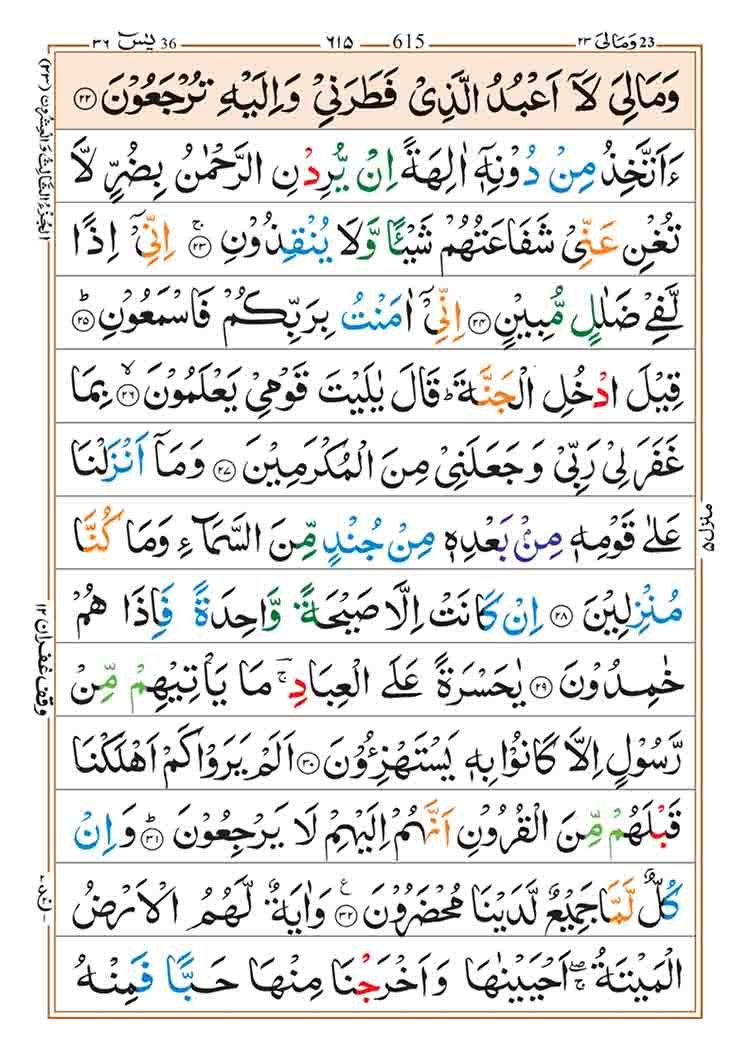 ٣٦ يٰسٓ 36 ٦١٥ 615 ٢٣ وَمَالِىَ 23
وَمَالِىَ لَاۤ اَعْبُدُ الَّذِىْ فَطَرَنِىْ وَاِلَيْهِ تُرْجَعُوْنَ ﴿۲۲﴾
ءَاَتَّخِذُ مِنْ دُوْنِهٖۤ اٰلِهَةً اِنْ يُّرِدْنِ الرَّحْمٰنُ بِضُرٍّ لَّا
تُغْنِ عَنِّىْ شَفَاعَتُهُمْ شَيْـًٔا وَّلَا يُنْقِذُوْنِ ۚ ﴿۲۳﴾ اِنِّىْۤ اِذًا
لَّفِىْ ضَلٰلٍ مُّبِيْنٍ ﴿۲۴﴾ اِنِّىْۤ اٰمَنْتُ بِرَبِّكُمْ فَاسْمَعُوْنِ ؕ ﴿۲۵﴾
قِيْلَ ادْخُلِ الْجَنَّةَ ؕ قَالَ يٰلَيْتَ قَوْمِىْ يَعْلَمُوْنَ ۙ ﴿۲۶﴾ بِمَا
غَفَرَ لِىْ رَبِّىْ وَجَعَلَنِىْ مِنَ الْمُكْرَمِيْنَ ﴿۲۷﴾ وَمَاۤ اَنْزَلْنَا
عَلٰى قَوْمِهٖ مِنْۢ بَعْدِهٖ مِنْ جُنْدٍ مِّنَ السَّمَآءِ وَمَا كُنَّا
مُنْزِلِيْنَ ﴿۲۸﴾ اِنْ كَانَتْ اِلَّا صَيْحَةً وَّاحِدَةً فَاِذَا هُمْ
خٰمِدُوْنَ ﴿۲۹﴾ يٰحَسْرَةً عَلَى الْعِبَادِ ۚ مَا يَاْتِيْهِمْ مِّنْ
رَّسُوْلٍ اِلَّا كَانُوْا بِهٖ يَسْتَهْزِءُوْنَ ﴿۳۰﴾ اَلَمْ يَرَوْا كَمْ اَهْلَكْنَا
قَبْلَهُمْ مِّنَ الْقُرُوْنِ اَنَّهُمْ اِلَيْهِمْ لَا يَرْجِعُوْنَ ؕ ﴿۳۱﴾ وَاِنْ
كُلٌّ لَّمَّا جَمِيْعٌ لَّدَيْنَا مُحْضَرُوْنَ ﴿۳۲﴾ وَاٰيَةٌ لَّهُمُ الْاَرْضُ
الْمَيْتَةُ ۖۚ اَحْيَيْنٰهَا وَاَخْرَجْنَا مِنْهَا حَبًّا فَمِنْهُ
اَلْجُزْءُ الثَّالِثُ وَالْعِشْرُوْنَ (٢٣)
وقف غفران ١٢
منزل ٥